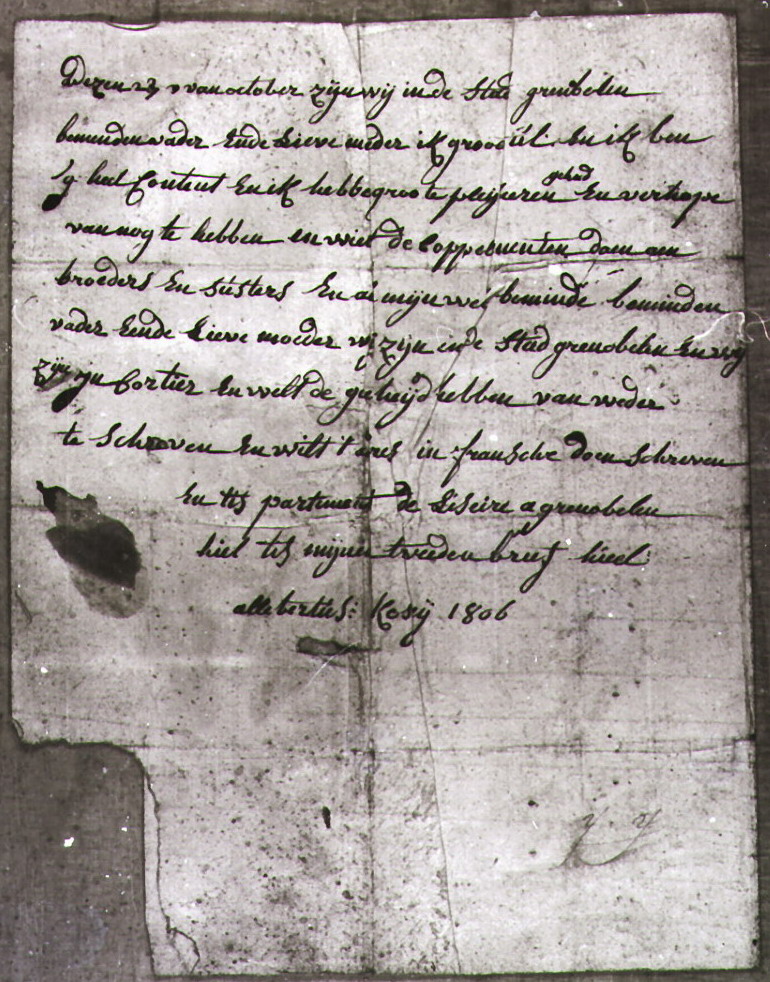 dezen 23 van october zijn wij in de stad grenbelen
beminden vader Ende Lieve moder ik groot ul. En ik ben
heel Content En ik hebbe groote pleijzeren gehad En verhope
van nog te hebben en wiet de Coppementen doen aen
broeders En susters En al mijn wel beminde beminden
vader Eende Lieve moeder wij zijn in de stad grenobelen En wij
zijn in Cortier En welt de goetheijd hebben van weder
te schreven En wilt t'adres in fransche doen schreven
En tis partement de Liseire a grenobelen
hiel tis mijnen tweeden brief hieel
allebertus: Kosij 1806